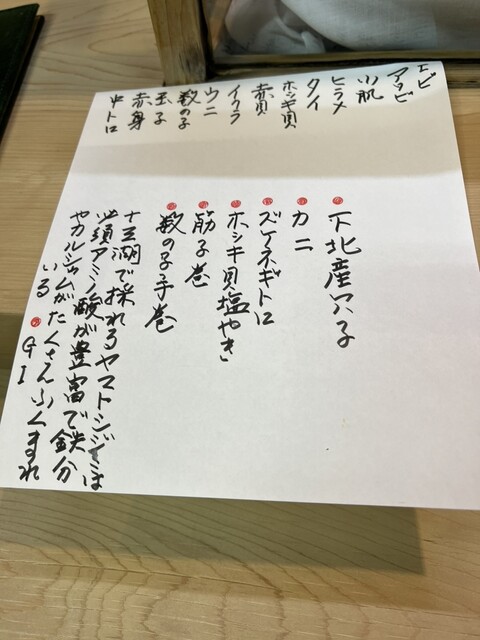 エビ
アワビ
小肌
ヒラメ
タイ
ホッキ貝
赤貝
イクラ
ウニ
数の子
玉子
赤身
中トロ
下北産穴子
カニ
ズケネギトロ
ホッキ貝塩やき
筋子巻
数の子手巻
十三湖で採れるヤマトシジミは
必須アミノ酸が豊富で鉄分
やカルシウムがたくさんふくまれ
いる
GI